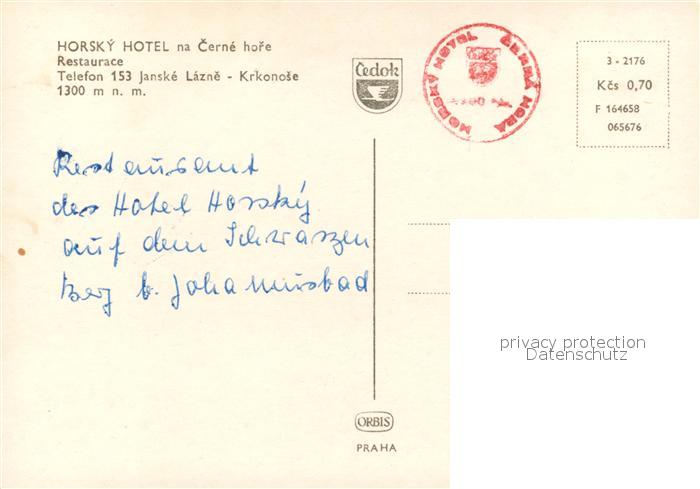 HORSKÝ HOTEL na Černé hoře
Restaurace
Telefon 153 Janské Lázně - Krkonoše
1300 m n. m.
Čedok
HORSKÝ HOTEL ČERNÁ HORA
3 - 2176
Kčs 0,70
F 164658
065676
Restaurant
des Hotel Horský
auf dem Schwarzen
Berg b. Johannisbad
privacy protection
Datenschutz
ORBIS
PRAHA